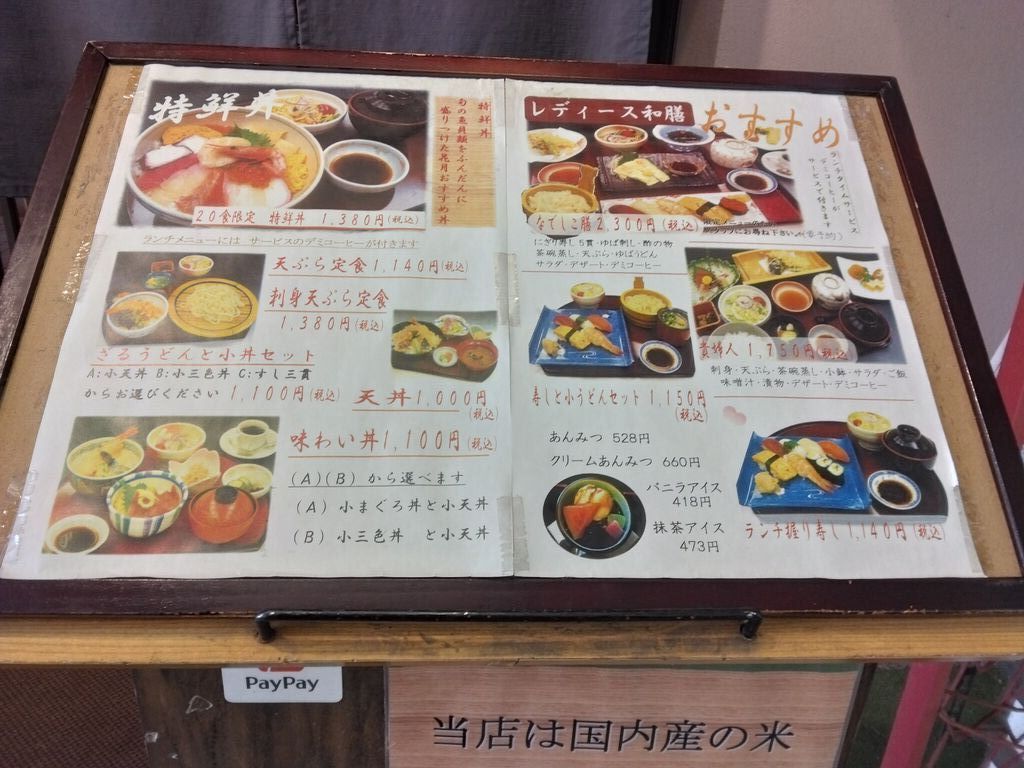 特鮮丼
特鮮丼
旬の魚貝類をふんだんに
盛りつけた花月おすすめ丼
20食限定 特鮮丼 1,380円(税込)
ランチメニューには サービスのデミコーヒーが付きます
天ぷら定食1,140円(税込)
刺身天ぷら定食
1,380円(税込)
ざるうどんと小丼セット
A:小天丼 B:小三色丼 C:すし三貫
からお選びください 1,100円(税込)
天丼1,000円
(税込)
味わい丼1,100円(税込)
(A)(B) から選べます
(A) 小まぐろ丼と小天丼
(B) 小三色丼 と小天丼
レディース和膳
おすすめ
ランチタイムサービス
デミコーヒーが
サービスで付きます
なでしこ膳2,300円(税込)
にぎり寿し5貫・ゆば刺し・酢の物
茶碗蒸し・天ぷら・ゆばうどん
サラダ・デザート・デミコーヒー
貴婦人 1,750円(税込)
刺身・天ぷら・茶碗蒸し・小鉢・サラダ・ご飯
味噌汁・漬物・デザート・デミコーヒー
寿しと小うどんセット 1,150円
(税込)
あんみつ 528円
クリームあんみつ 660円
バニラアイス
418円
抹茶アイス
473円
ランチ握り寿し1,140円(税込)
PayPay
当店は国内産の米